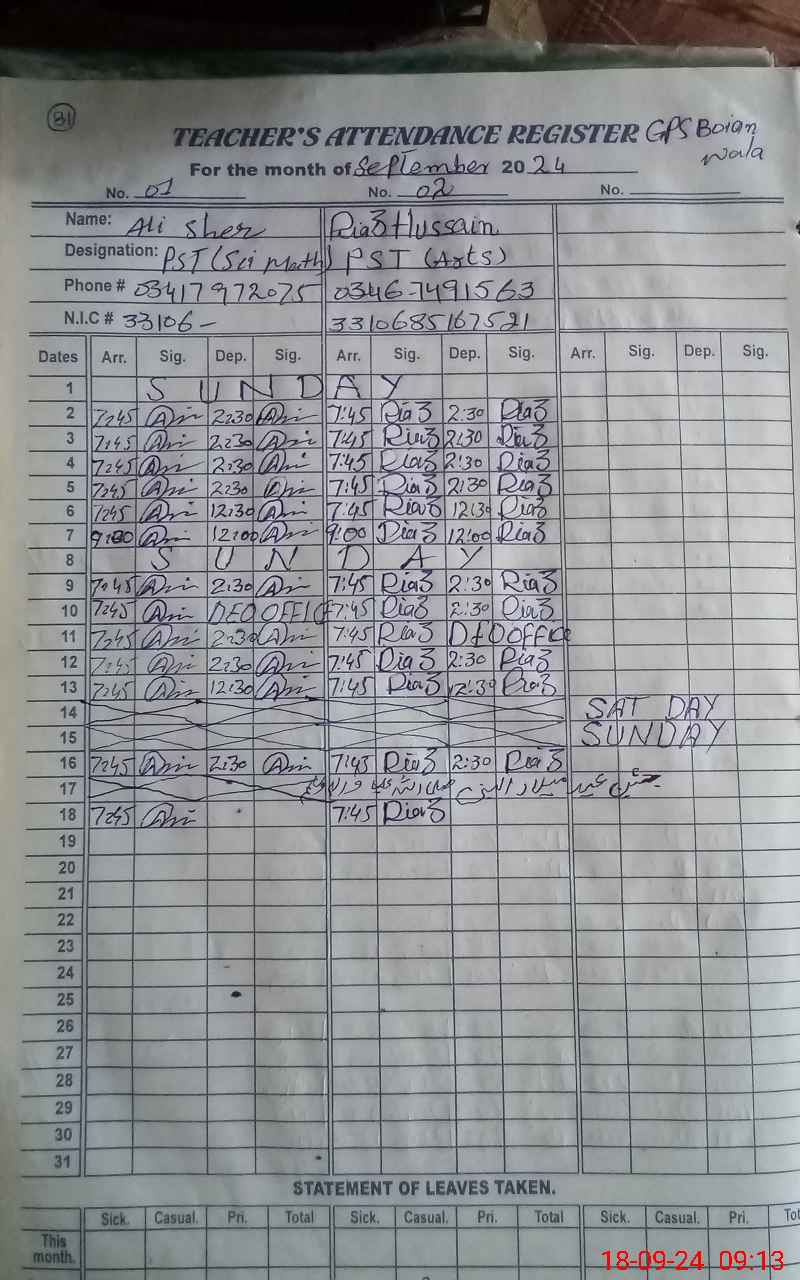 31
TEACHER'S ATTENDANCE REGISTER GPS Boian wala
For the month of September 2024
No. 01 No. 02 No.
Name: Ali Sher Riaz Hussain
Designation: PST (Sci Math) PST (Arts)
Phone # 03417972075 0346-7491563
N.I.C # 33106- 3310685167521
Dates Arr. Sig. Dep. Sig. Arr. Sig. Dep. Sig. Arr. Sig. Dep. Sig.
1 SUNDAY
2 7:45 Ali 2:30 Ali 7:45 Riaz 2:30 Riaz
3 7:45 Ali 2:30 Ali 7:45 Riaz 2:30 Riaz
4 7:45 Ali 2:30 Ali 7:45 Riaz 2:30 Riaz
5 7:45 Ali 2:30 Ali 7:45 Riaz 2:30 Riaz
6 7:45 Ali 12:30 Ali 7:45 Riaz 12:30 Riaz
7 9:00 Ali 12:00 Ali 9:00 Riaz 12:00 Riaz
8 SUNDAY
9 7:45 Ali 2:30 Ali 7:45 Riaz 2:30 Riaz
10 7:45 Ali DEO OFFICE 7:45 Riaz 2:30 Riaz
11 7:45 Ali 2:30 Ali 7:45 Riaz DEO OFFICE
12 7:45 Ali 2:30 Ali 7:45 Riaz 2:30 Riaz
13 7:45 Ali 12:30 Ali 7:45 Riaz 12:30 Riaz
14 SAT DAY
15 SUNDAY
16 7:45 Ali 2:30 Ali 7:45 Riaz 2:30 Riaz
17 جشن عید میلاد النبی
18 7:45 Ali 7:45 Riaz
19
20
21
22
23
24
25
26
27
28
29
30
31
STATEMENT OF LEAVES TAKEN.
Sick. Casual. Pri. Total Sick. Casual. Pri. Total Sick. Casual. Pri. Tot
This month.
18-09-24 09:13